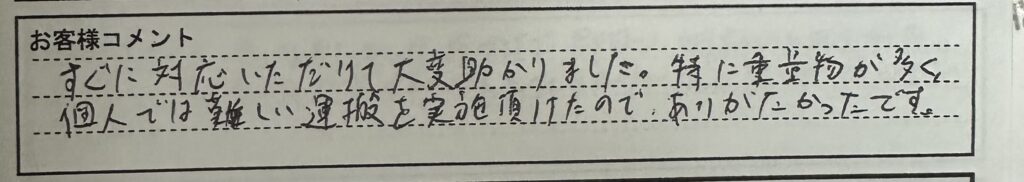 お客様コメント
すぐに対応いただけて大変助かりました。特に重量物が多く、
個人では難しい運搬を実施頂けたので、ありがたかったです。